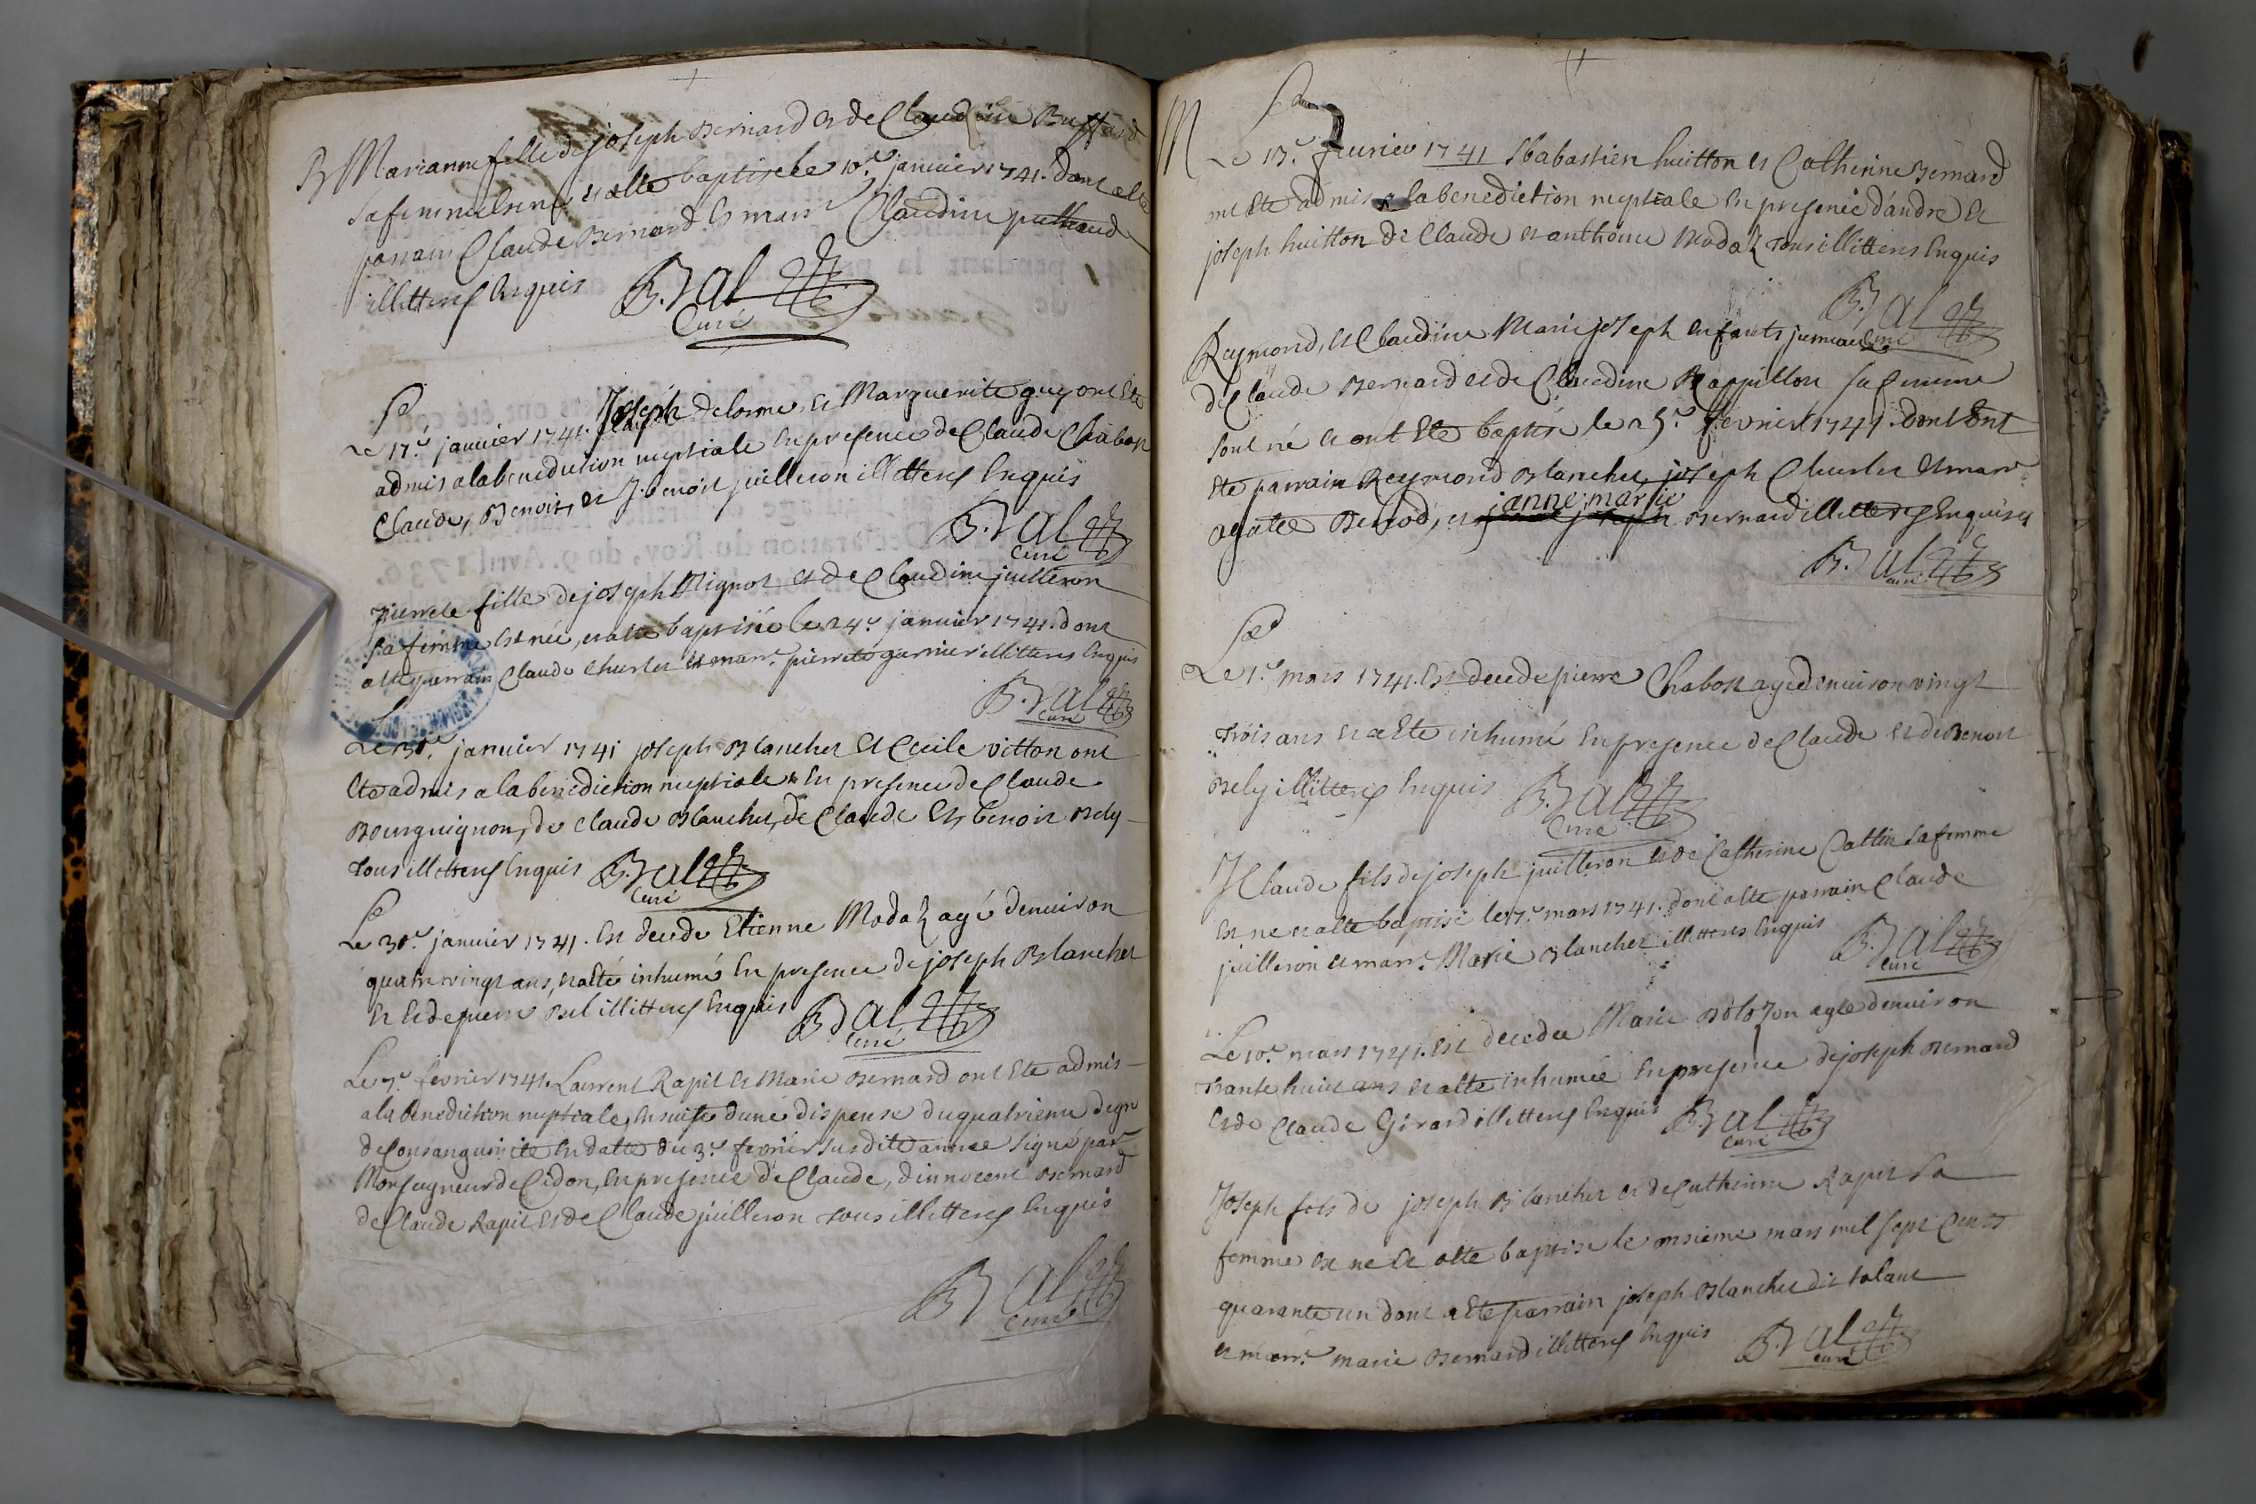 B Marianne fille de joseph Bernard et de Claudine Buffard
sa femme est née et a esté baptisée le 10e janvier 1741. dont a esté
parrain Claude Bernard et marr.e Claudine
illitterés Enquis
B. Bal
Curé
Le 17e janvier 1741. Joseph delorme et Marguerite guy ont Eté
admis a la benediction nuptiale En presence de Claude Chabot
Claude, Benoit, et J. benoit juilleron illitterés Enquis
B. Bal
Curé
pierrete fille de joseph Mignot et de Claudine juilleron
sa femme Est née, et a esté baptisée le 24e janvier 1741. dont
a esté parrain Claude Churlet et marr.e pierrete garnier illitteres Enquis
B. Bal
Curé
Le 30e janvier 1741 joseph Blanchet Et Cecile vitton ont
Eté admis a la benediction nuptiale En presence de Claude
Bourguignon, de Claude Blanchet, de Claude Et benoit Bely
tous illitterés Enquis B. Bal
Curé
Le 30e janvier 1741. Est decedé Etienne Modaz agé denviron
quatre vingt ans, et a eté inhumé En presence de joseph Blanchet
Et Et de pierre Bel illitterés Enquis B. Bal
Curé
Le 7e fevrier 1741. Laurent Rapit Et Marie Bernard ont Eté admis
a la benediction nuptiale, En suite dune dispense du quatrieme degré
de Consanguinité En datte du 3e fevrier susdite année signé par
Monseigneur de Cidon, En presence de Claude, d'innocent Bernard
de Claude Rapit Et de Claude juilleron tous illitterés Enquis
B. Bal
Curé
M
Le 13e fevrier 1741 Sbabastien huitton et Catherine Bernard
ont Eté admis a la benediction nuptiale En presence d'andre Et
joseph huitton de Claude et anthoine Modaz tous illitterés Enquis
B. Bal
Curé
Reymond, et Claudine Marie joseph Enfants jumeaux
de Claude Bernard et de Claudine Rappillon sa femme
sont né et ont Eté baptisé le 25e fevrier 1741. dont ont
Eté parrain Reymond Blanchet, joseph Churlet Et marr.e
janne marie
agate Berrod, et Bernard illitterés Enquis
B. Bal
Curé
Le 1e mars 1741. Est decedé pierre Chabot agé denviron vingt
trois ans et a Eté inhumé En presence de Claude et de Benoit
Bely illitterés Enquis B. Bal
Curé
J Claude fils de joseph juilleron et de Catherine Cattin sa femme
Est ne et a eté baptisé le 7e mars 1741. dont a eté parrain Claude
juilleron et marr.e Marie Blanchet illitteres Enquis B. Bal
Curé
Le 10e mars 1741. Est decedée Marie Bolozon agée denviron
trante huit ans et a eté inhumée En presence de joseph Bernard
Et de Claude Girard illitterés Enquis B. Bal
Curé
Joseph fils de joseph Blanchet et de Catherine Rapit sa
femme Est né Et a eté baptisé le onsieme mars mil sept Cents
quarante un dont a Eté parrain joseph Blanchet dit talant
et marr.e marie Bernard illitterés Enquis B. Bal
Curé